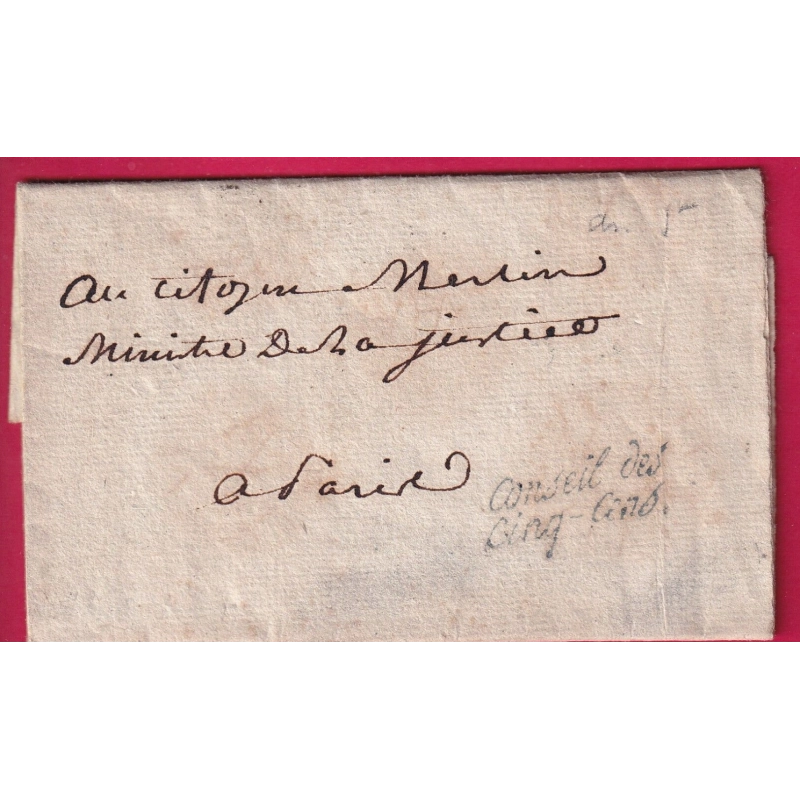 Au citoyen Merlin
Ministre De La justice
a Paris
Conseil des
Cinq-Cens.